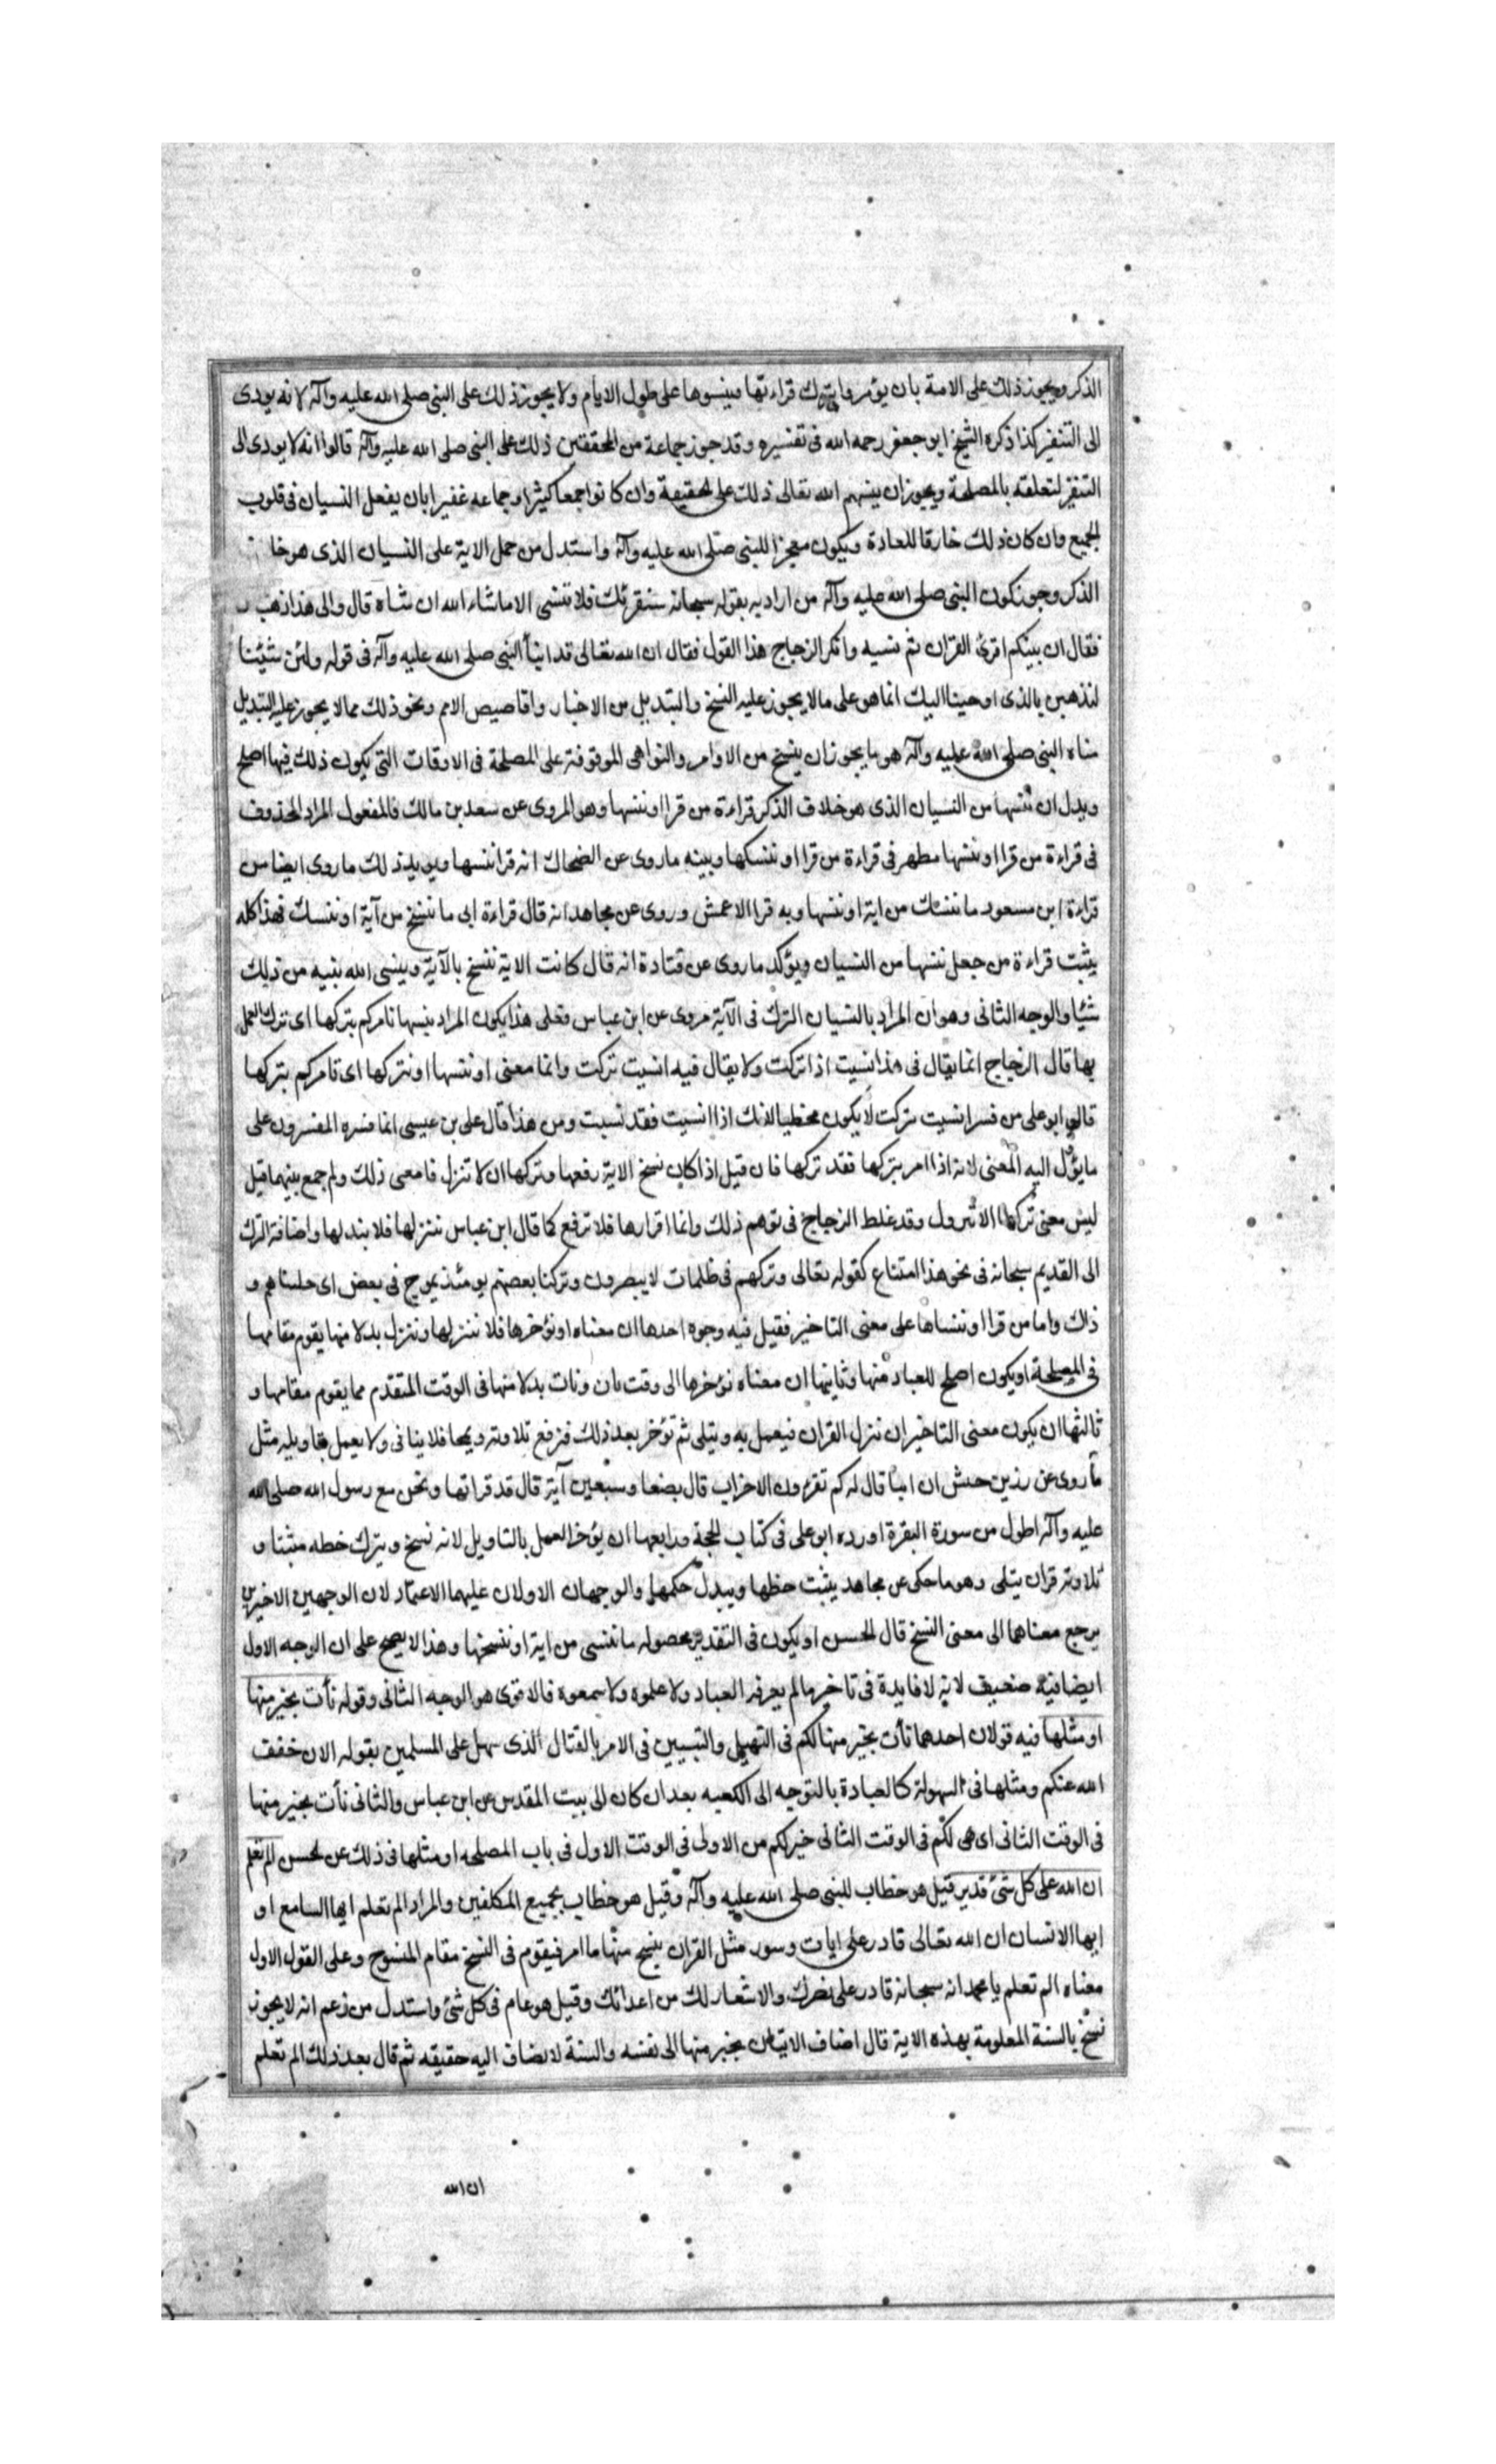 الذكر ويجوز ذلك على الامة بان يؤمروا بترك قراءتها فينسوها على طول الايام ولا يجوز ذلك على النبي صلى الله عليه وآله لانه يودى
الى التنفير كذا ذكره الشيخ ابو جعفر رحمه الله فى تفسيره وقد جوز جماعة من المحققين ذلك على النبي صلى الله عليه وآله قالوا انه لا يودى الى
التنفير لتعلقه بالمصلحة ويجوز ان ينسهم الله تعالى ذلك على الحقيقة وان كانوا جمعا كثيرا وجماعه غفيرا بان يفعل النسيان فى قلوب
الجميع وان كان ذلك خارقا للعادة ويكون معجزا للنبي صلى الله عليه وآله واستدل من حمل الاية على النسيان الذى هو خلا
الذكر وجوز كون النبي صلى الله عليه وآله من اراد به بقوله سبحانه سنقرئك فلا تنسى الا ما شاء الله ان نشاه قال والى هذا ذهب
فقال ان نبيكم اقرئ القران ثم نسيه وانكر الزجاج هذا القول فقال ان الله تعالى قد انبأ النبي صلى الله عليه وآله فى قوله ولئن شئنا
لنذهبن بالذى اوحينا اليك انما هو على ما لا يجوز عليه النسخ والتبديل من الاخبار واقاصيص الامم ونحو ذلك مما لا يجوز عليه التبديل
نساه النبي صلى الله عليه وآله هو ما يجوز ان ينسخ من الاوامر والنواهى الموقوفة على المصلحة فى الاوقات التى يكون ذلك فيها اصلح
ويدل ان ننسها من النسيان الذى هو خلاف الذكر قراءة من قرا او ننسها وهو المروى عن سعد بن مالك فالمفعول المراد المحذوف
فى قراءة من قرا او ننسها مظهر فى قراءة من قرا او ننسكها وبينه ما روى عن الضحاك انه قرا ننسها ويويد ذلك ما روى ايضا من
قراءة ابن مسعود ما ننسك من اية او ننسها وبه قرا الاعمش وروى عن مجاهد انه قال قراءة ابى ما ننسخ من آية او ننسك فهذا كله
يثبت قراءة من جعل ننسها من النسيان ويؤكد ما روى عن قتادة انه قال كانت الاية تنسخ بالآية وينسى الله نبيه من ذلك
شيئا والوجه الثانى وهو ان المراد بالنسيان الترك فى الآية مروى عن ابن عباس فعلى هذا يكون المراد بننسها نامركم بتركها اى بترك العمل
بها قال الزجاج انما يقال فى هذا نسيت اذا تركت ولا يقال فيه انسيت تركت وانما معنى او ننسها او نتركها اى نامركم بتركها
قال ابو على من فسر انسيت تركت لا يكون مخطيا لانك اذا انسيت فقد نسيت ومن هذا قال على بن عيسى انما فسره المفسرون على
ما يؤل اليه المعنى لانه اذا امر بتركها فقد تركها فان قيل اذا كان نسخ الاية رفعها وتركها ان لا تنزل فما معنى ذلك ولم جمع بينهما قيل
ليس معنى تركها الا تنزول وقد غلط الزجاج فى توهم ذلك وانما اقرارها فلا ترفع كما قال ابن عباس ننزلها فلا نبدلها واضافة الترك
الى القديم سبحانه فى نحو هذا اتساع كقوله تعالى وتركهم فى ظلمات لا يبصرون وتركنا بعضهم يومئذ يموج فى بعض اى خليناهم و
ذاك واما من قرا او ننساها على معنى التاخير فقيل فيه وجوه احدها ان معناه او نؤخرها فلا ننزلها وننزل بدلا منها يقوم مقامها
فى المصلحة او يكون اصلح للعباد منها وثانيها ان معناه نؤخرها الى وقت ثان ونات بدلا منها فى الوقت المتقدم مما يقوم مقامها و
ثالثها ان يكون معنى التاخير ان ننزل القران فيعمل به ويتلى ثم نؤخر بعد ذلك فنرفع تلاوته ويمحا فلا ينافى ولا يعمل بتاويله مثل
ما روى عن زر بن حبيش ان ابيا قال له كم تقرؤن الاحزاب قال بضعا وسبعين آية قال قد قراتها ونحن مع رسول الله صلى الله
عليه وآله اطول من سورة البقرة اورده ابو على فى كتاب الحجة ورابعها ان يؤخر العمل بالتاويل لانه نسخ ويترك خطه مثبتا و
تلاوته قران يتلى وهو ما حكى عن مجاهد يثبت خطها ويبدل حكمها والوجهان الاولان عليهما الاعتماد لان الوجهين الاخيرين
يرجع معناهما الى معنى النسخ قال الحسن او يكون فى التقدير محصوله ما ننسى من اية او ننسخها وهذا لا يصح على ان الوجه الاول
ايضا فيه ضعيف لانه لا فايدة فى تاخير ما لم يعرفه العباد ولا علموه ولا سمعوه فالاقوى هو الوجه الثانى وقوله نأت بخير منها
او مثلها فيه قولان احدهما نأت بخير منها لكم فى التسهيل والتيسير فى الامر بالقتال الذى سهل على المسلمين بقوله الان خفف
الله عنكم ومثلها فى السهولة كالعبادة بالتوجه الى الكعبه بعد ان كان الى بيت المقدس عن ابن عباس والثانى نأت بخير منها
فى الوقت الثانى اى هى لكم فى الوقت الثانى خير لكم من الاولى فى الوقت الاول فى باب المصلحه او مثلها فى ذلك عن الحسن الم تعلم
ان الله على كل شئ قدير قيل هو خطاب للنبي صلى الله عليه وآله وقيل هو خطاب بجميع المكلفين والمراد الم تعلم ايها السامع او
ايها الانسان ان الله تعالى قادر على ايات وسور مثل القران ينسخ منها ما امر فيقوم فى النسخ مقام المنسوخ وعلى القول الاول
معناه الم تعلم يا محمد انه سبحانه قادر على نصرك والانتصار لك من اعدائك وقيل هو عام فى كل شئ واستدل من زعم انه لا يجوز
نسخ بالسنة المعلومة بهذه الاية قال اضاف الاتيان بخير منها الى نفسه والسنة لا يضاف اليه حقيقه ثم قال بعد ذلك الم تعلم
ان الله